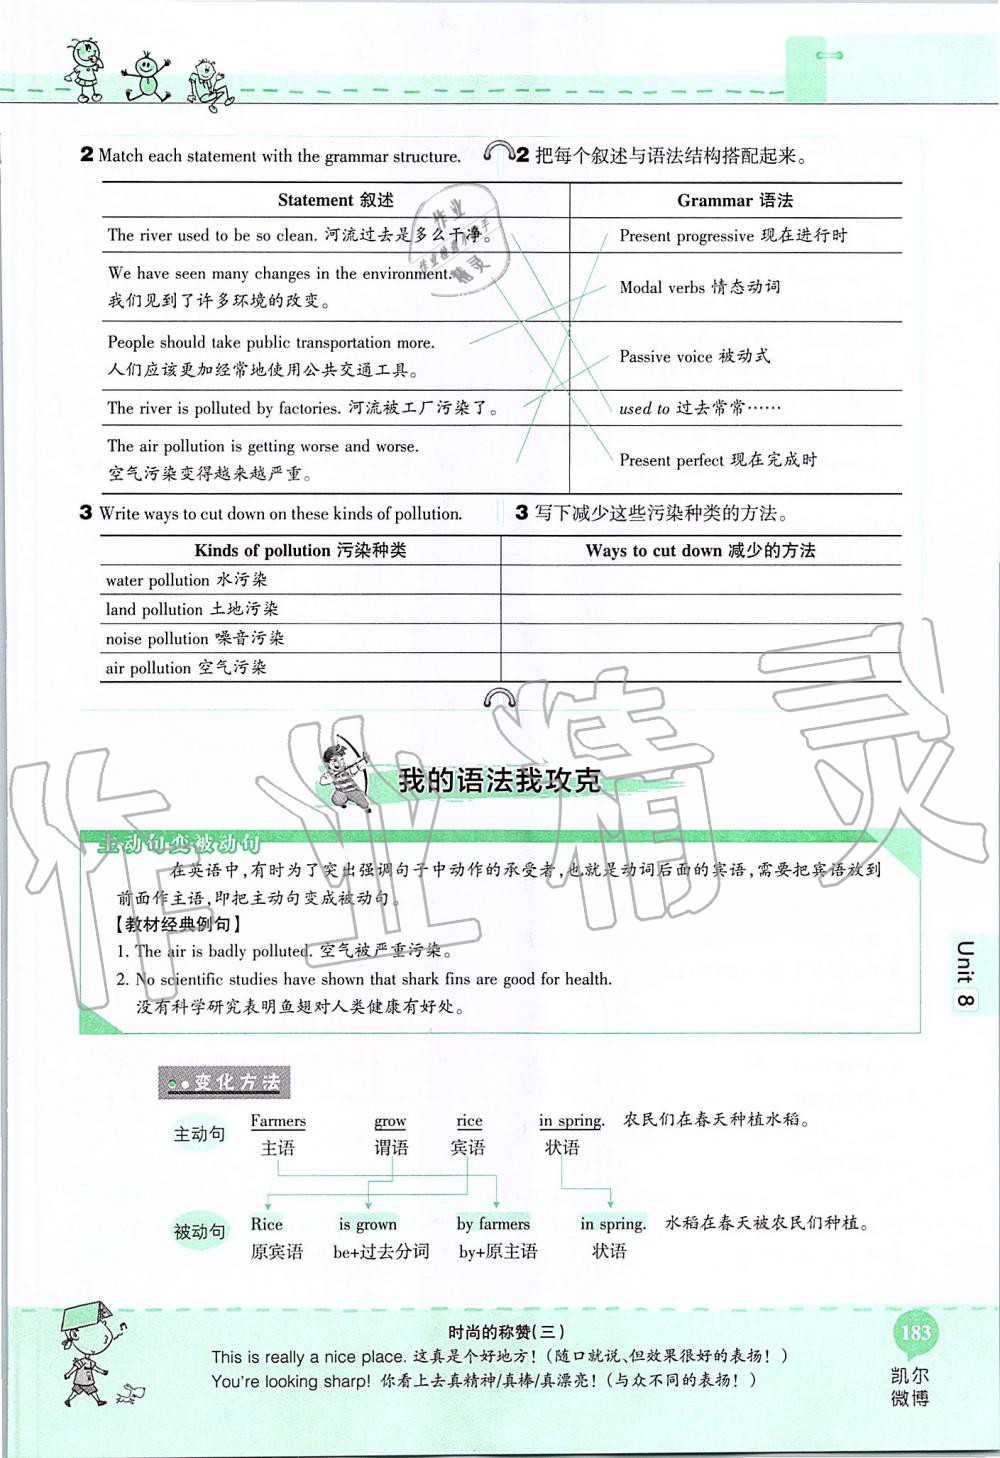 2 Match each statement with the grammar structure.
2 把每个叙述与语法结构搭配起来。
Statement 叙述
Grammar 语法
The river used to be so clean. 河流过去是多么干净。
Present progressive 现在进行时
We have seen many changes in the environment.
我们见到了许多环境的改变。
Modal verbs 情态动词
People should take public transportation more.
人们应该更加经常地使用公共交通工具。
Passive voice 被动式
The river is polluted by factories. 河流被工厂污染了。
used to 过去常常……
The air pollution is getting worse and worse.
空气污染变得越来越严重。
Present perfect 现在完成时
3 Write ways to cut down on these kinds of pollution.
3 写下减少这些污染种类的方法。
Kinds of pollution 污染种类
Ways to cut down 减少的方法
water pollution 水污染
land pollution 土地污染
noise pollution 噪音污染
air pollution 空气污染
我的语法我攻克
主动句变被动句
在英语中,有时为了突出强调句子中动作的承受者,也就是动词后面的宾语,需要把宾语放到
前面作主语,即把主动句变成被动句。
【教材经典例句】
1. The air is badly polluted. 空气被严重污染。
2. No scientific studies have shown that shark fins are good for health.
没有科学研究表明鱼翅对人类健康有好处。
Unit 8
变化方法
主动句
Farmers grow rice in spring. 农民们在春天种植水稻。
主语 谓语 宾语 状语
被动句
Rice is grown by farmers in spring. 水稻在春天被农民们种植。
原宾语 be+过去分词 by+原主语 状语
时尚的称赞(三)
This is really a nice place. 这真是个好地方!(随口就说、但效果很好的表扬!)
You're looking sharp! 你看上去真精神/真棒/真漂亮!(与众不同的表扬!)
183
凯尔
微博
作业精灵
作业
作业检查小帮手
精灵